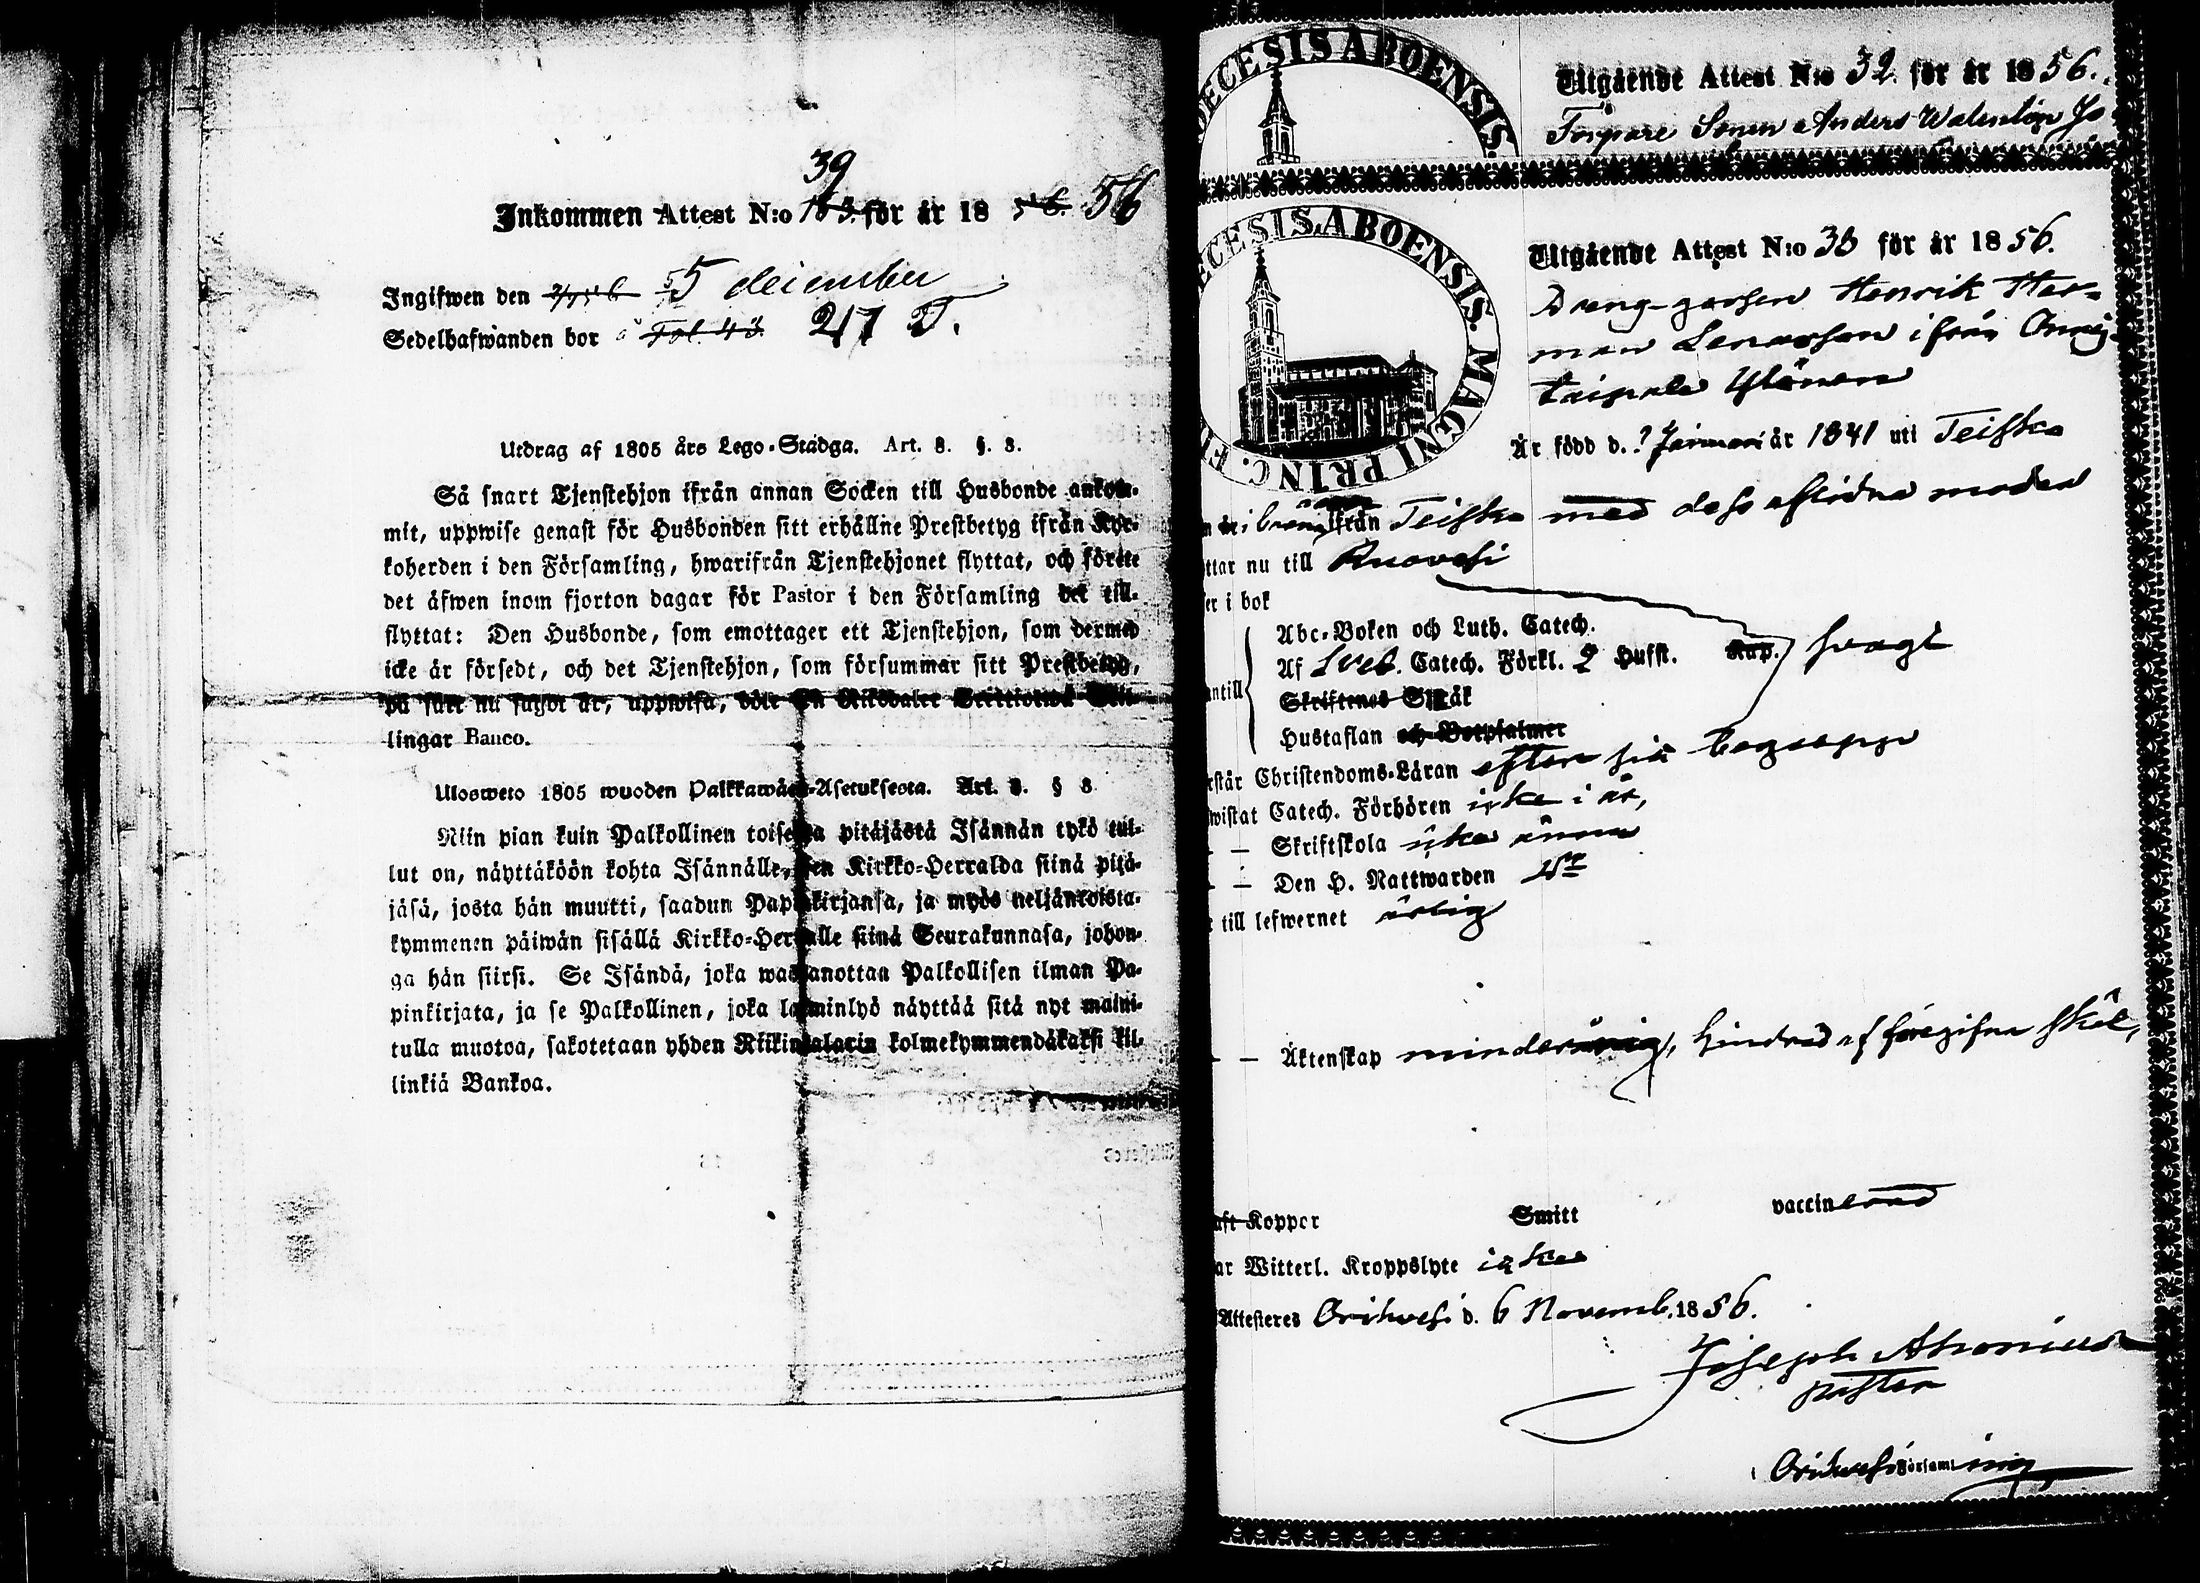 39
Inkommen Attest N:o 183. för år 18 56. 56
Ingifwen den 5 december
Sedelhafwanden bor å Fol. 43. 217 D.
Utdrag af 1805 års Lego-Stadga. Art. 8. §. 8.
Så snart Tjenstehjon ifrån annan Socken till Husbonde ankom-
mit, uppwise genast för Husbonden sitt erhållne Prestbetyg ifrån Kyr-
koherden i den Församling, hwarifrån Tjenstehjonet flyttat, och förete
det äfwen inom fjorton dagar för Pastor i den Församling det till-
flyttat: Den Husbonde, som emottager ett Tjenstehjon, som dermed
icke är försedt, och det Tjenstehjon, som försummar sitt Prestbetyg,
på sätt nu sagdt är, uppwisa, böte En Riksdaler Trettiotwå Skil-
lingar Banco.
Ulosweto 1805 wuoden Palkkawäen-Asetuksesta. Art. 8. § 8
Niin pian kuin Palkollinen toisesta pitäjästä Isännän tykö tul-
lut on, näyttäköön kohta Isännälle, sen Kirkko-Herralda siinä pitä-
jäsä, josta hän muutti, saadun Papinkirjansa, ja myös neljäntoista-
kymmenen päiwän sisällä Kirkko-Herralle siinä Seurakunnasa, johon-
ga hän siirsi. Se Isändä, joka wastanottaa Palkollisen ilman Pa-
pinkirjata, ja se Palkollinen, joka laiminlyö näyttää sitä nyt maini-
tulla muotoa, sakotetaan yhden Riikindalarin kolmekymmendäkaksi kil-
linkiä Bankoa.
DECESIS ABOENSIS.
Utgående Attest N:o 32. för år 1856.
Torpare Sonen Anders Walentin Jo
ECESIS ABOENSIS. MAGNI PRINC. FI
Utgående Attest N:o 33 för år 1856.
Dreng-gossen Henrik Her-
man Lenarson ifrån
taipale Ylönen
Är född d. ? Januari år 1841 uti Teisko
ifrån Teisko med dess aflidna moder
ttar nu till Ruovesi
er i bok
Abc-Boken och Luth. Catech.
Af Sveb. Catech. Förkl. 2 Hufst. Kap. svagt
antill
Skriftenes Språk
Hustaflan och Botpsalmer
rstår Christendoms-Läran efter sin begrepp
wistat Catech. Förhören icke i år,
— — Skriftskola icke ännu
— — Den H. Nattwarden
till lefwernet ärlig
— — Äktenskap minderårig, hindrad af föregifna skäl,
aft Koppor Smitt vaccinerad
ar Witterl. Kroppslyte icke
Attesteres Orihvesi d. 6 Novemb. 1856.
Joseph Ahonius
pastor
i Orihvesi Församling